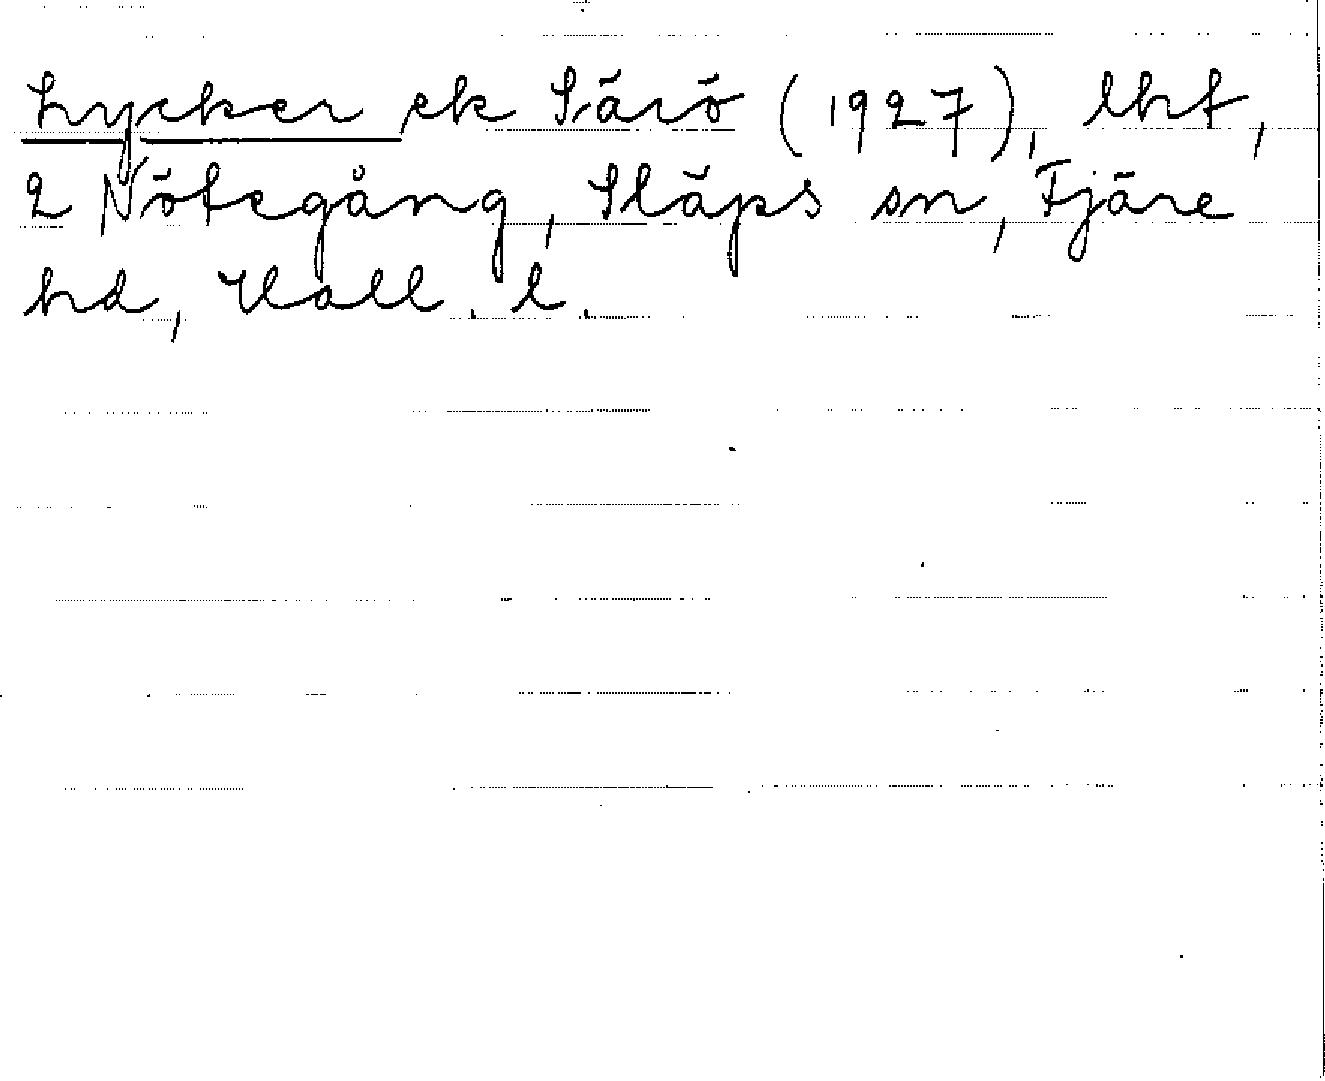 Lycker ek Särö (1927), lht,
2 Nötegång, Släps sn, Fjäre
hd, Hall. l.